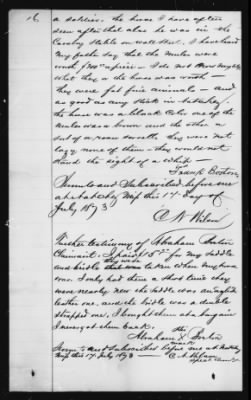 16
a soldier. the horse I have often
seen after that also he was in the
Cavalry Stable on wall street. I have heard
my father say that the mules were
worth $ apiece. I do not know exactly
what they or the horse was worth —
they were fat fine animals — and
as good as any stock in Natchez.
the horse was a black Color one of the
mules was a brown and the other a
sort of a roan sorrell. they were not
lazy none of them — they would not
stand the sight of a whip —
Frank Boston
Sworn to and Subscribed before me
at Natchez Miss this 17 day of
July 1873
Further testimony of Abraham Burlin
Claimant. I paid 15$ for my saddle
and bridle that was taken when they were
. I only had them a short time they
were nearly new the saddle was
leather one, and the bridle was a double
strapped one, I bought them at a bargain
I never got them back.
his
Abraham X Burlin
mark
Sworn to and Subscribed before me at Natchez
Miss this 17 July 1873